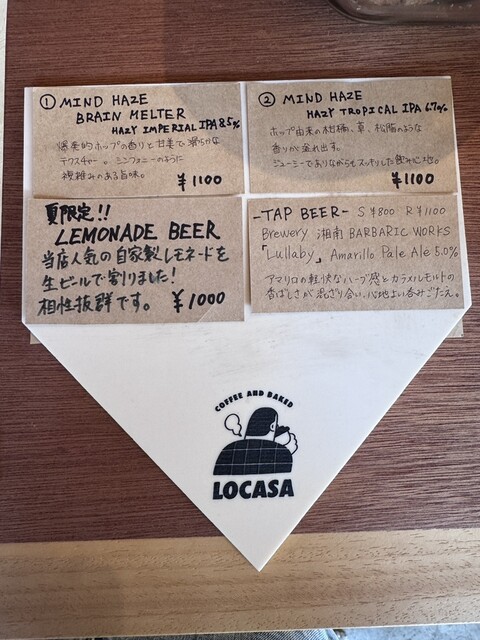 ① MIND HAZE
BRAIN MELTER
HAZY IMPERIAL IPA 8.5%
爆発的ホップの香りと甘美で滑らかな
テクスチャー。シンフォニーのように
複雑みのある旨味。
¥1100
② MIND HAZE
HAZY TROPICAL IPA 6.7%
ホップ由来の柑橘、草、松脂のような
香りが溢れ出す。
ジューシーでありながらもスッキリした飲み心地。
¥1100
夏限定!!
LEMONADE BEER
当店人気の自家製レモネードを
生ビールで割りました!
相性抜群です。 ¥1000
-TAP BEER- S ¥800 R ¥1100
Brewery 湘南 BARBARIC WORKS
「Lullaby」 Amarillo Pale Ale 5.0%
アマリロの軽快なハーブ感とカラメルモルトの
香ばしさが混ざり合い、心地よい呑みごたえ。
COFFEE AND BAKED
LOCASA